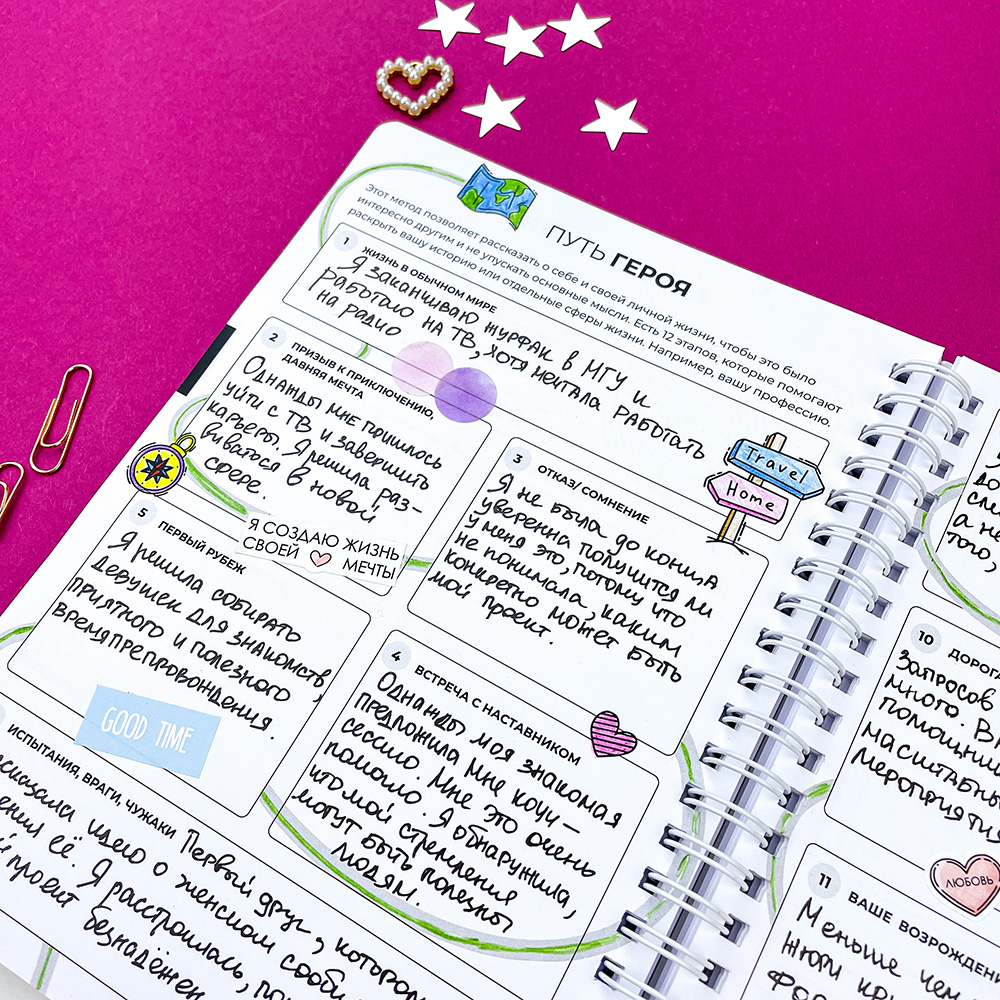 ПУТЬ ГЕРОЯ
Этот метод позволяет рассказать о себе и своей личной жизни, чтобы это было
интересно другим и не упускать основные мысли. Есть 12 этапов, которые помогают
раскрыть вашу историю или отдельные сферы жизни. Например, вашу профессию.
1 ЖИЗНЬ В ОБЫЧНОМ МИРЕ
Я заканчиваю журфак в МГУ и
работаю на ТВ, хотя мечтала работать
на радио
2 ПРИЗЫВ К ПРИКЛЮЧЕНИЮ,
ДАВНЯЯ МЕЧТА
Однажды мне пришлось
уйти с ТВ и завершить
карьеру. Я решила раз-
виваться в новой
сфере.
Travel
Home
3 ОТКАЗ/ СОМНЕНИЕ
Я не была до конца
уверенна получится ли
у меня это, потому что
не понимала, каким
конкретно может быть
мой проект.
Я СОЗДАЮ ЖИЗНЬ
СВОЕЙ МЕЧТЫ
5 ПЕРВЫЙ РУБЕЖ
Я решила собирать
девушек для знакомств,
приятного и полезного
времяпрепровождения.
GOOD TIME
4 ВСТРЕЧА С НАСТАВНИКОМ
Однажды моя знакомая
предложила мне коуч-
сессию. Мне это очень
помогло. Я обнаружила,
что мои стремления
могут быть полезны
людям.
ИСПЫТАНИЯ, ВРАГИ, ЧУЖАКИ
Первый друг, котором
идею о женском сообщ
её. Я расстроилась, по
проект безнадёжен
а не
того,
10 ДОРОГА
Запросов
много. В
помощни
масштабны
мероприяти
ЛЮБОВЬ
11 ВАШЕ ВОЗРОЖДЕНИ
Меньше чем